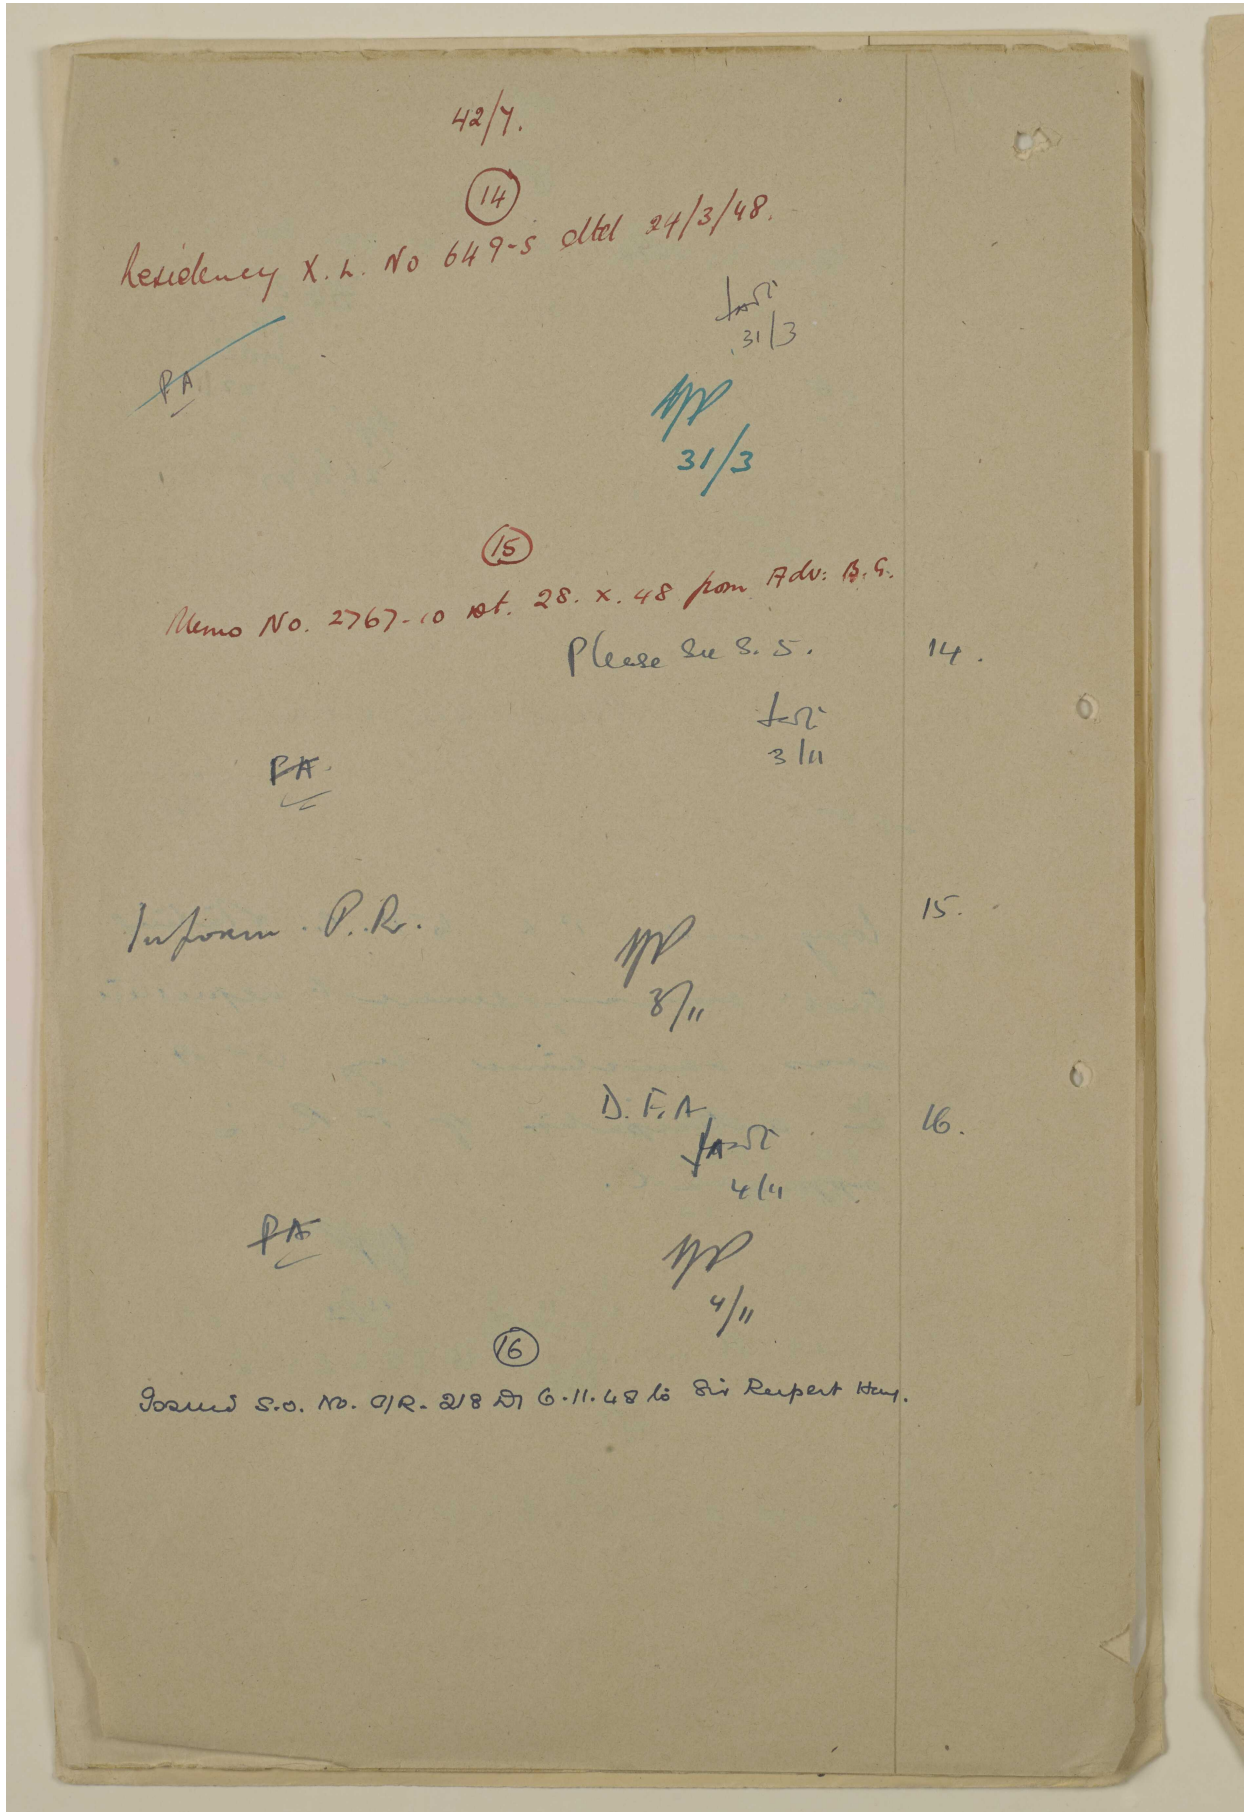 42/7.
14
Residency X. L. No 649-S dtd 24/3/48.
31/3
P.A
31/3
15
Memo No. 2767-10 dt. 28. x. 48 from Adv: B. G.
Please see S. 5. 14.
3/11
PA
Inform. P. R. 15.
3/11
D. F. A 16.
4/11
PA
4/11
16
Issued S.O. No. C/R- 218 Dt 6.11.48 to Sir Rupert Hay.